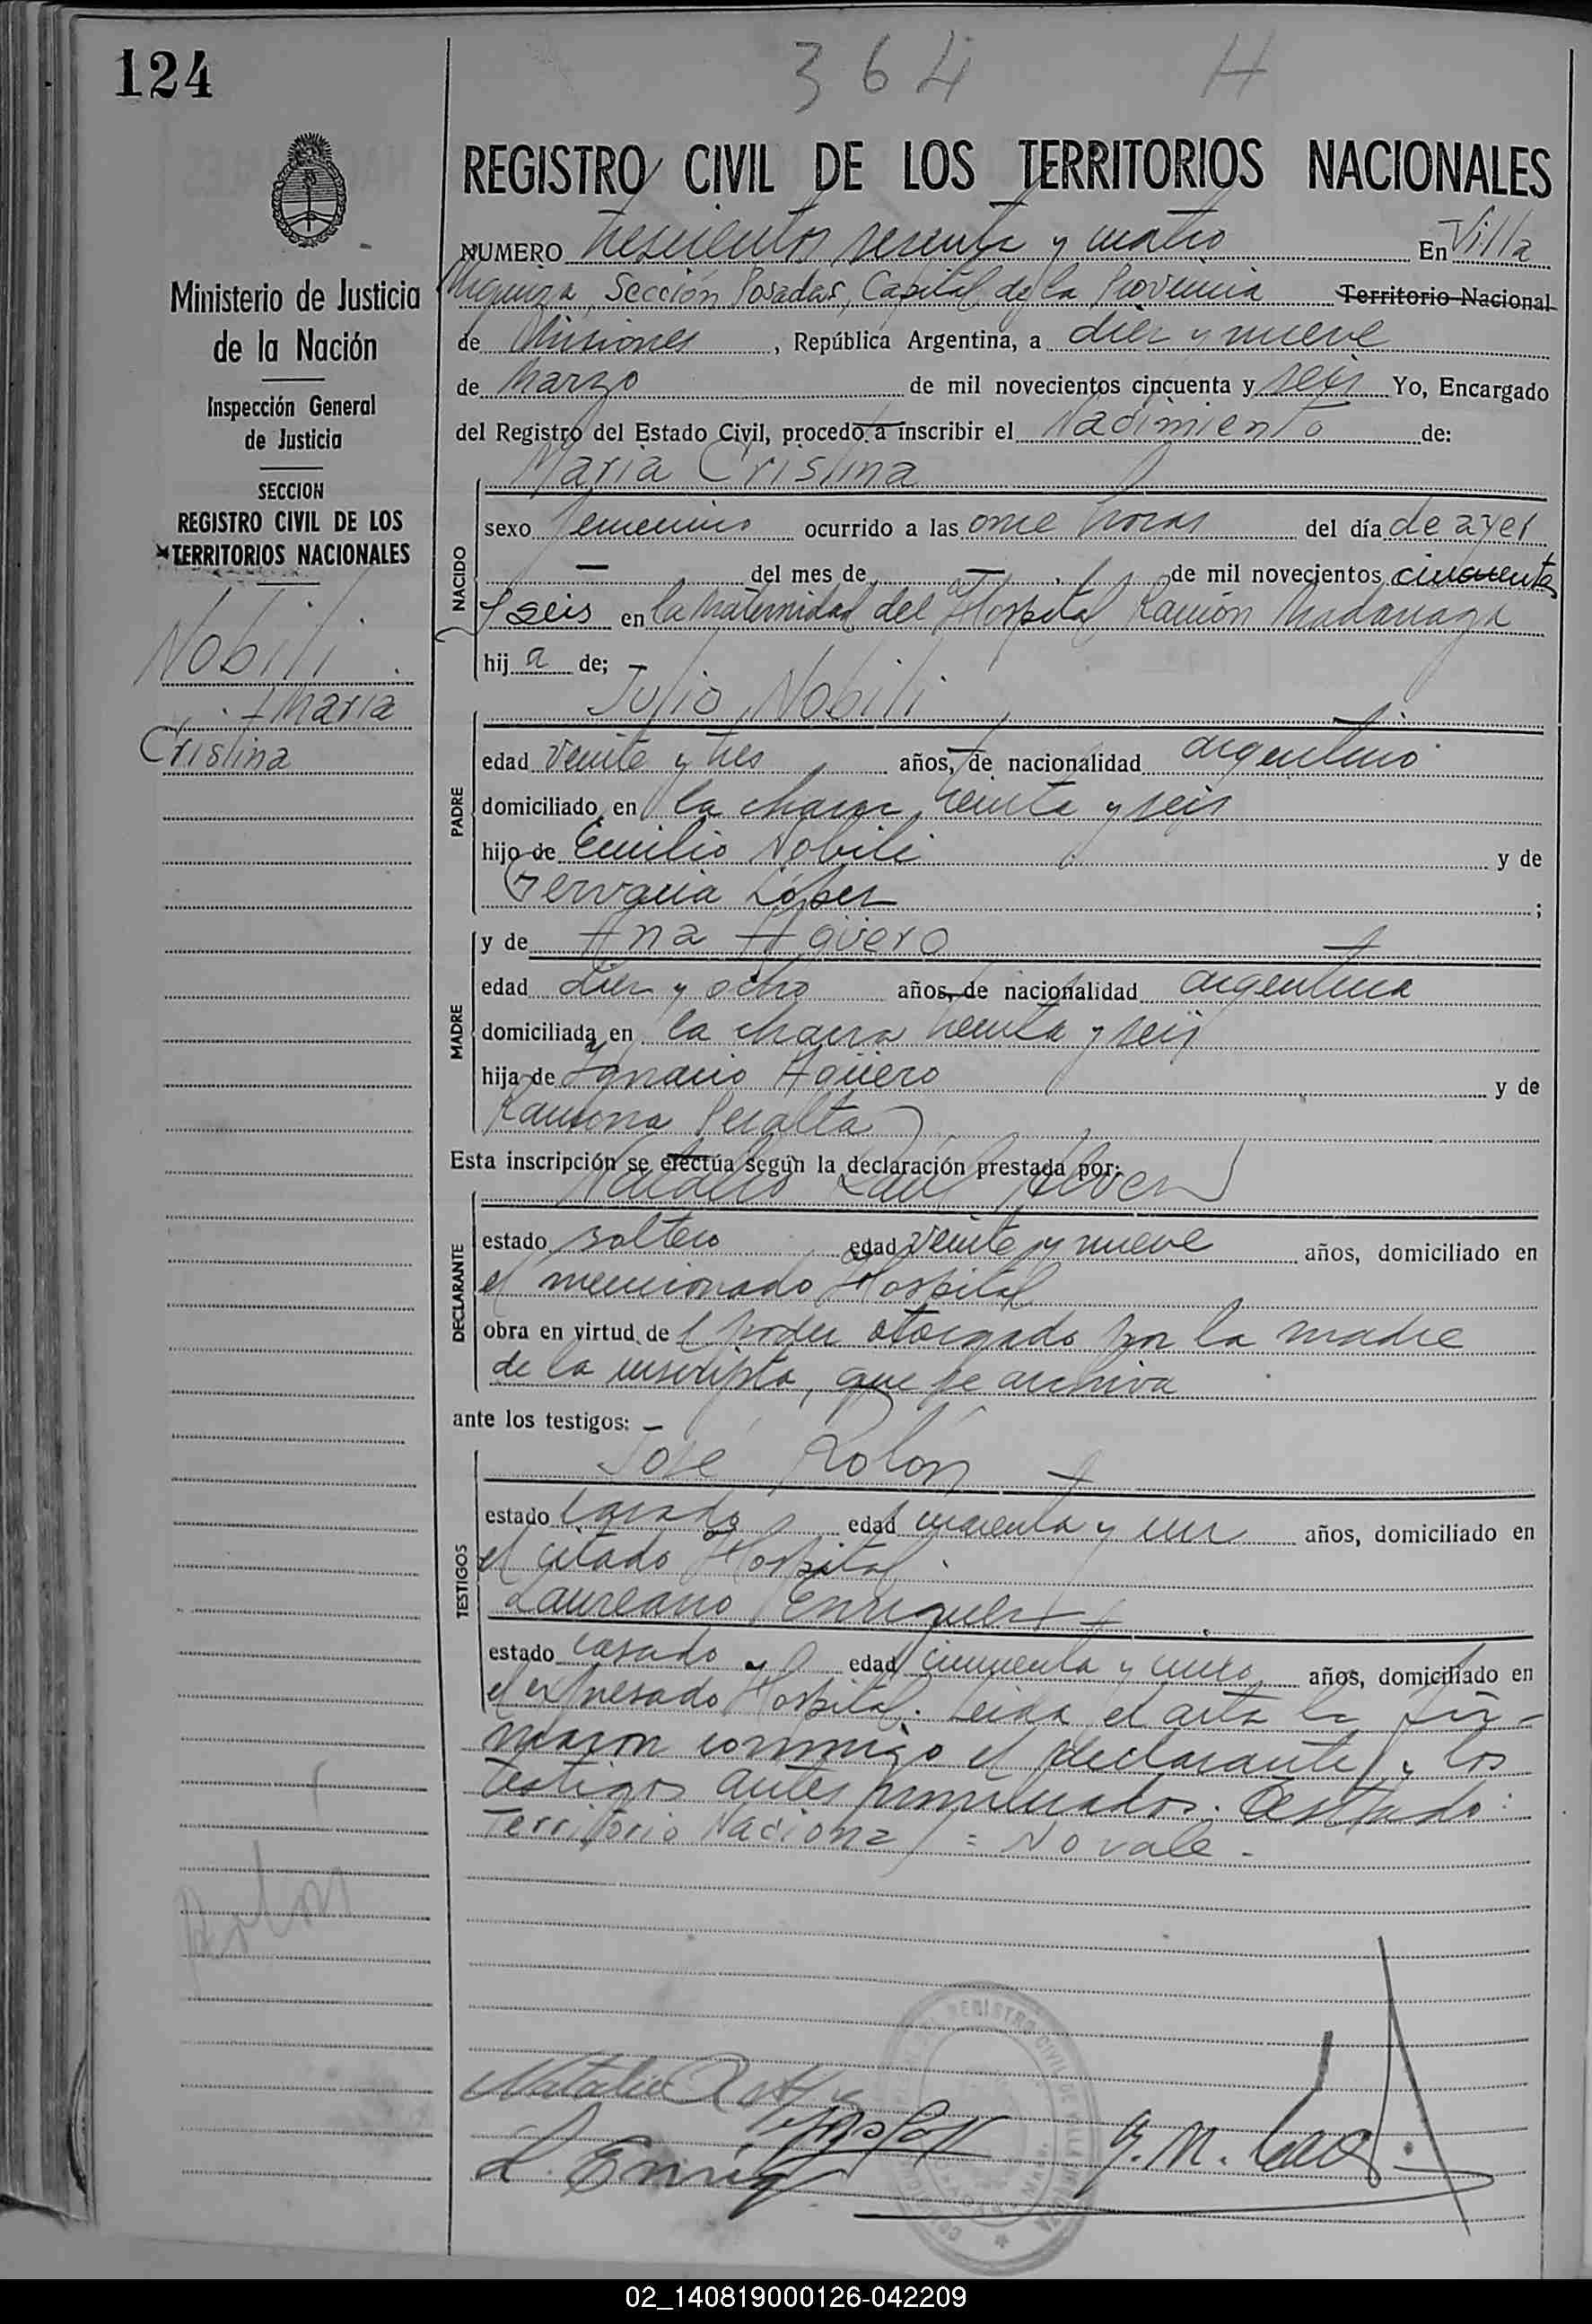 124
364 H
REGISTRO CIVIL DE LOS TERRITORIOS NACIONALES
Ministerio de Justicia
de la Nación
Inspección General
de Justicia
SECCION
REGISTRO CIVIL DE LOS
TERRITORIOS NACIONALES
Nobili
María
Cristina
NUMERO trescientos sesenta y cuatro En Villa
Urquiza, Sección Posadas, Capital de la Provincia Territorio Nacional
de Misiones, República Argentina, a diez y nueve
de Marzo de mil novecientos cincuenta y seis Yo, Encargado
del Registro del Estado Civil, procedo a inscribir el Nacimiento de:
NACIDO
María Cristina
sexo femenino ocurrido a las once horas del día de ayer
— del mes de — de mil novecientos cincuenta
y seis en la Maternidad del Hospital Ramón Madariaga
hija de;
PADRE
Julio Nobili
edad veinte y tres años, de nacionalidad argentino
domiciliado en la chacra treinta y seis
hijo de Emilio Nobili y de
Gervacia López ;
MADRE
y de Ana Agüero
edad diez y ocho años, de nacionalidad argentina
domiciliada en la chacra treinta y seis
hija de Ignacio Agüero y de
Ramona Peralta
Esta inscripción se efectúa según la declaración prestada por:
DECLARANTE
Natalio Raúl
estado soltero edad veinte y nueve años, domiciliado en
el mencionado Hospital
obra en virtud de l poder otorgado por la madre
de la inscripta, que se archiva
ante los testigos:
TESTIGOS
José Rolón
estado casado edad cuarenta y un años, domiciliado en
el citado Hospital.
Laureano Enriquez
estado casado edad cincuenta y cinco años, domiciliado en
el expresado Hospital. Leída el acta la fir-
maron conmigo el declarante y los
testigos antes nombrados. Testado:
Territorio Nacional = No vale.-
Rolón
Natalio R
L. Enriq
G. M.
REGISTRO CIVIL DE VILLA URQUIZA
02_140819000126-042209